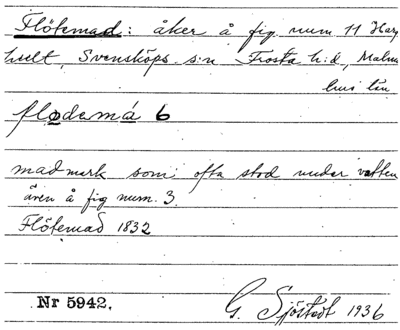 Flötemad: åker å fig. num. 11 Harp
hult, Svensköps s:n Frosta h:d, Malmö
hus län
flødemá 6
madmark som ofta stod under vatten
även å fig num. 3.
Flötemad 1832
Nr 5942. G. Sjöstedt 1936